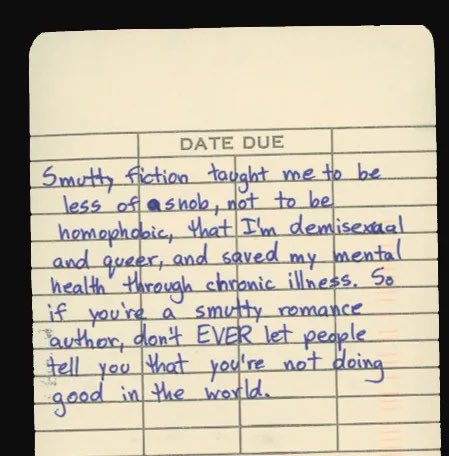 DATE DUE
Smutty fiction taught me to be
less of a snob, not to be
homophobic, that I'm demisexual
and queer, and saved my mental
health through chronic illness. So
if you're a smutty romance
author, don't EVER let people
tell you that you're not doing
good in the world.